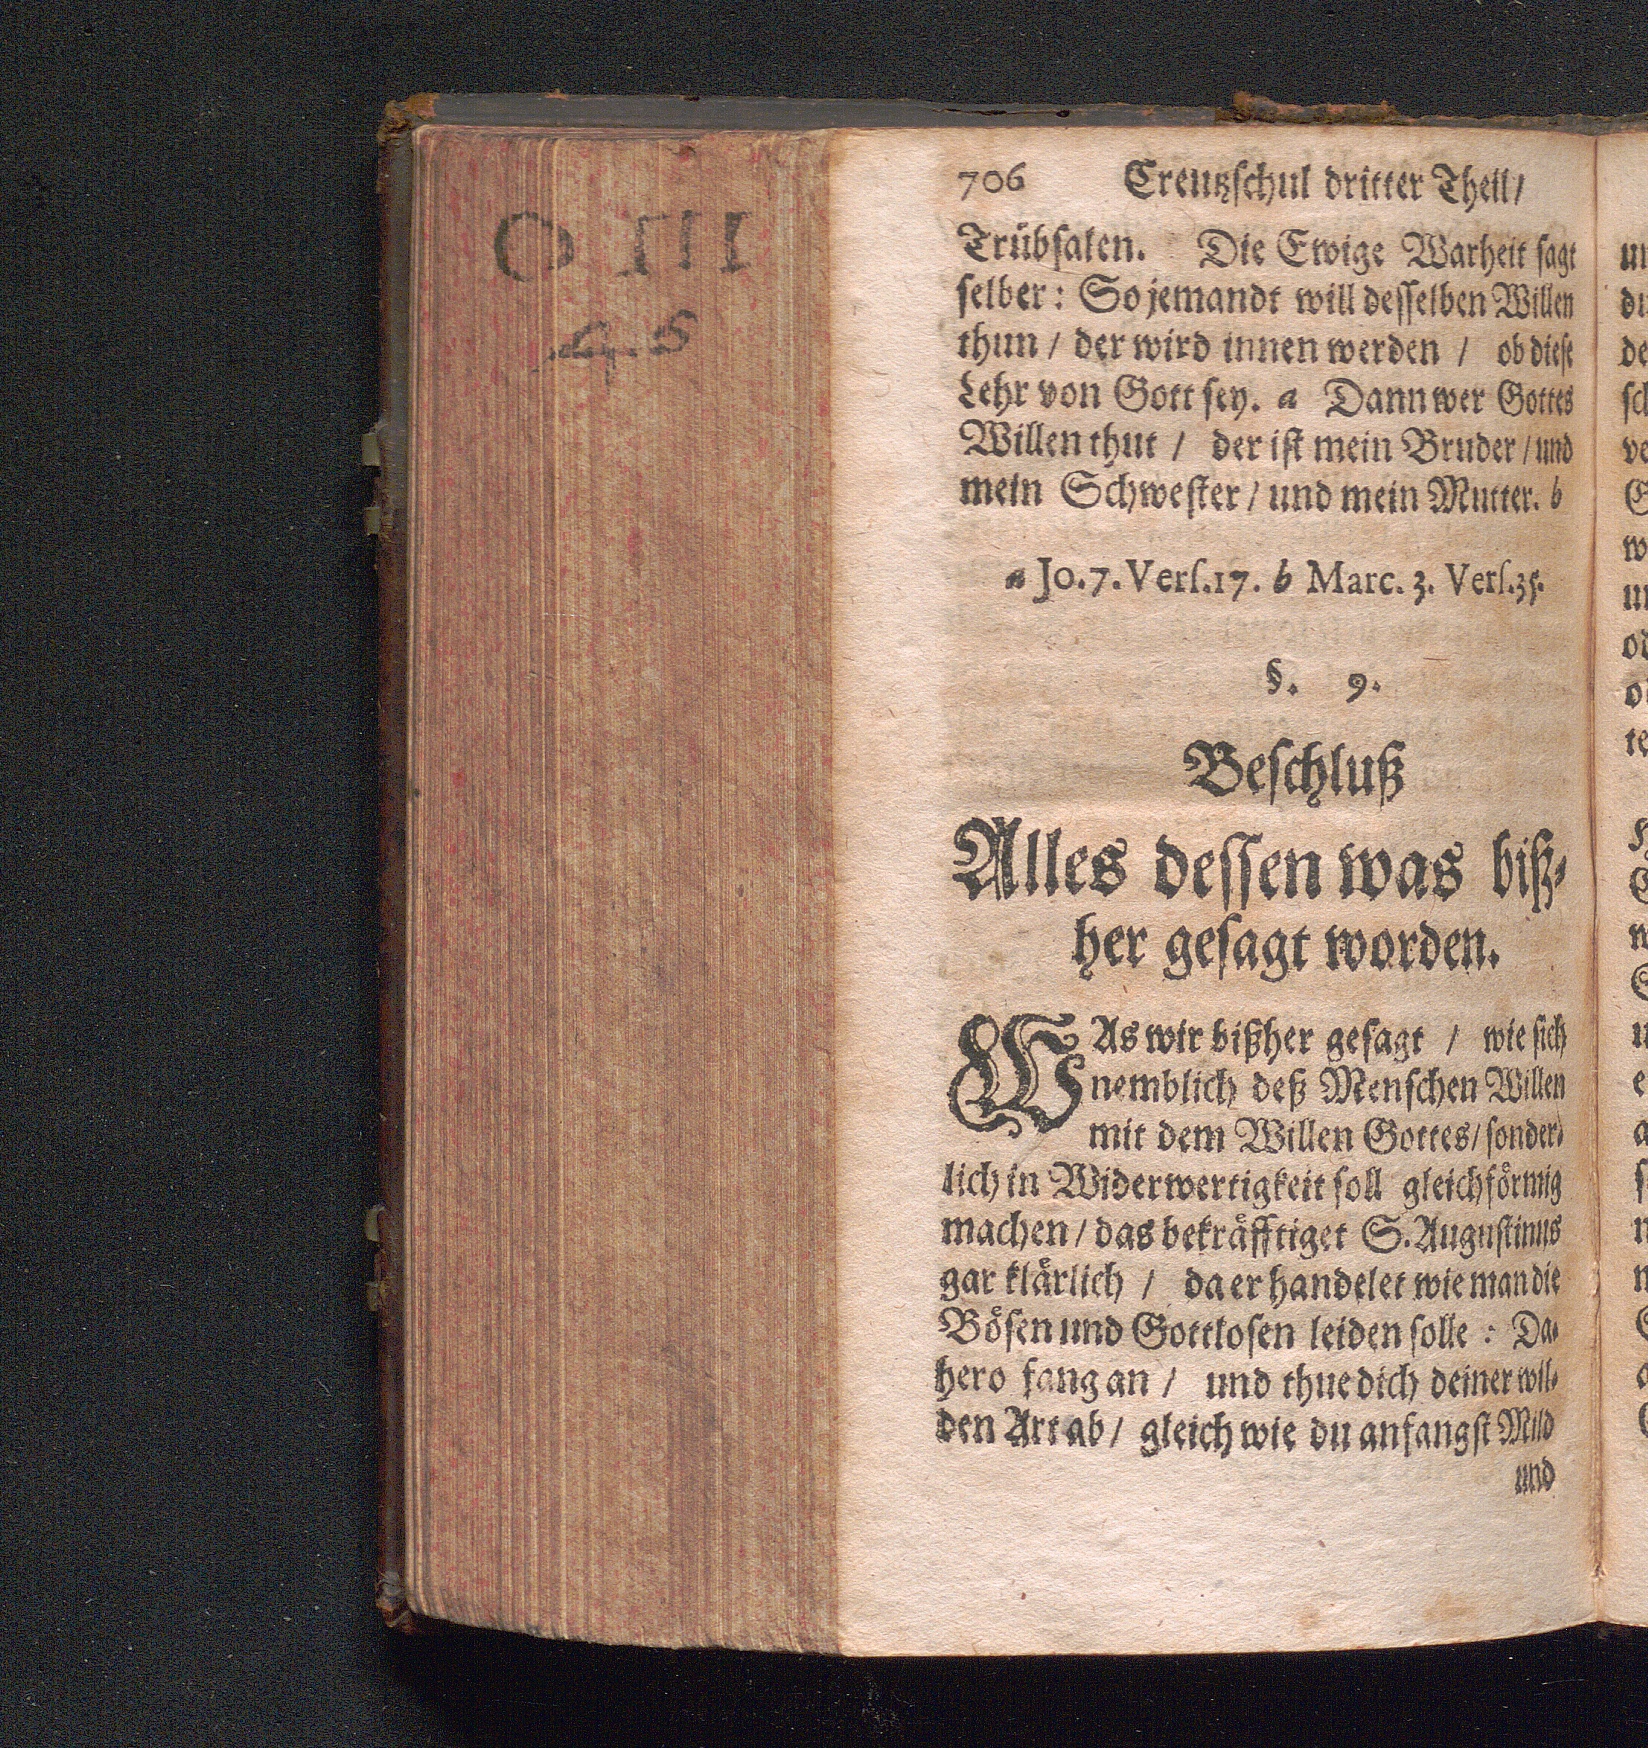 O III
4.5
706 Creutzschul dritter Theil/
Trübsalen. Die Ewige Warheit sagt
selber: So jemandt will desselben Willen
thun / der wird innen werden / ob diese
Lehr von Gott sey. a Dann wer Gottes
Willen thut / der ist mein Bruder / und
mein Schwester / und mein Mutter. b
a Jo. 7. Vers. 17. b Marc. 3. Vers. 35.
§. 9.
Beschluß
Alles dessen was biß-
her gesagt worden.
WAs wir bißher gesagt / wie sich
nemblich deß Menschen Willen
mit dem Willen Gottes / sonder-
lich in Widerwertigkeit soll gleichförmig
machen / das bekräfftiget S. Augustinus
gar klärlich / da er handelet wie man die
Bösen und Gottlosen leiden solle : Da-
hero fang an / und thue dich deiner wil-
den Art ab / gleich wie du anfangst Mild
und